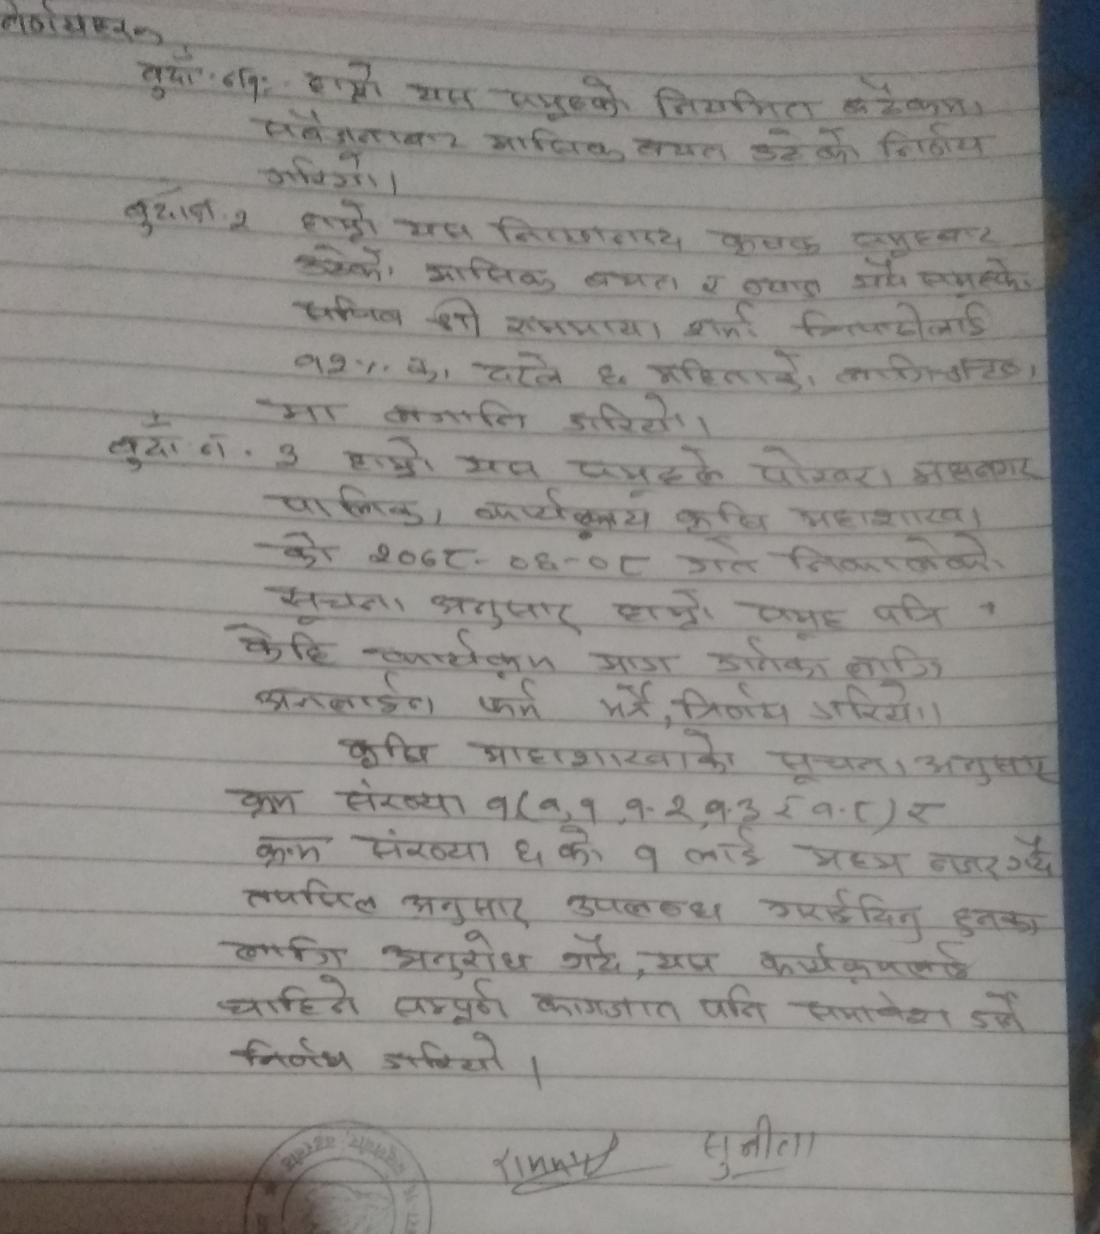 निर्णयहरु
बुँदा नं १: हाम्रो यस समूहको नियमित बैठकमा
मासिक बचत उठेको निर्णय
गरियो।
बुँदा नं. २ हाम्रो यस कृषक समूहबाट
उठेको मासिक बचत र व्याज समूहकै
सचिव श्री शर्मा लाई
१२%. का दरले ६ महिनाको
मा लगानि गरियो।
बुँदा नं. ३ हाम्रो यस समूहले पोखरा महानगर
पालिका, कार्यालय कृषि महाशाखा
को २०७८-०६-०८ गते निकालेको
सूचना अनुसार हाम्रो समूह पनि
केहि कार्यक्रम माग गर्नका लागि
अनलाईन फर्म भर्ने, निर्णय गरियो।
कृषि माहाशाखाको सूचना अनुसार
क्रम संख्या १(१.१, १.२, १.३ र १.८) र
क्रम संख्या ६ को १ लाई मध्य नजर गर्दै
तपसिल अनुसार उपलब्ध गराईदिनु हुनका
लागि अनुरोध गर्दै, यस कार्यक्रमलाई
चाहिने सम्पूर्ण कागजात पनि समावेश गर्ने
निर्णय गरियो।
सुनीता